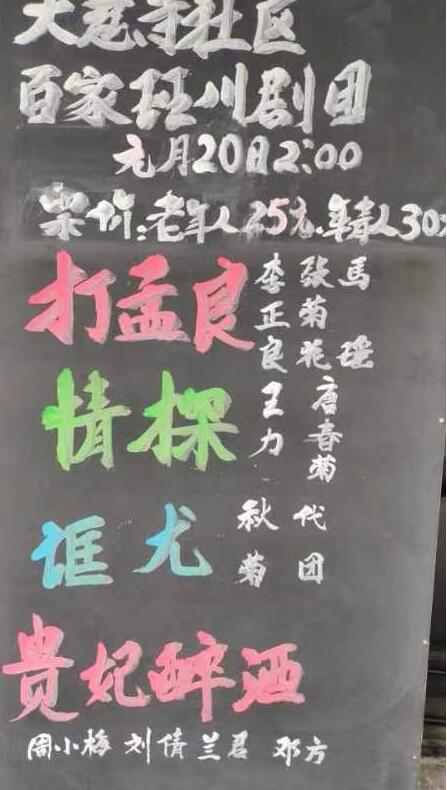 大慈寺社区
百家班川剧团
元月20日2:00
票价:老年人25元.年青人30元
打孟良
李正良 张菊花 马瑶
情探
王力 唐春菊
诓尤
秋菊 代团
贵妃醉酒
周小梅 刘倩 兰君 邓方